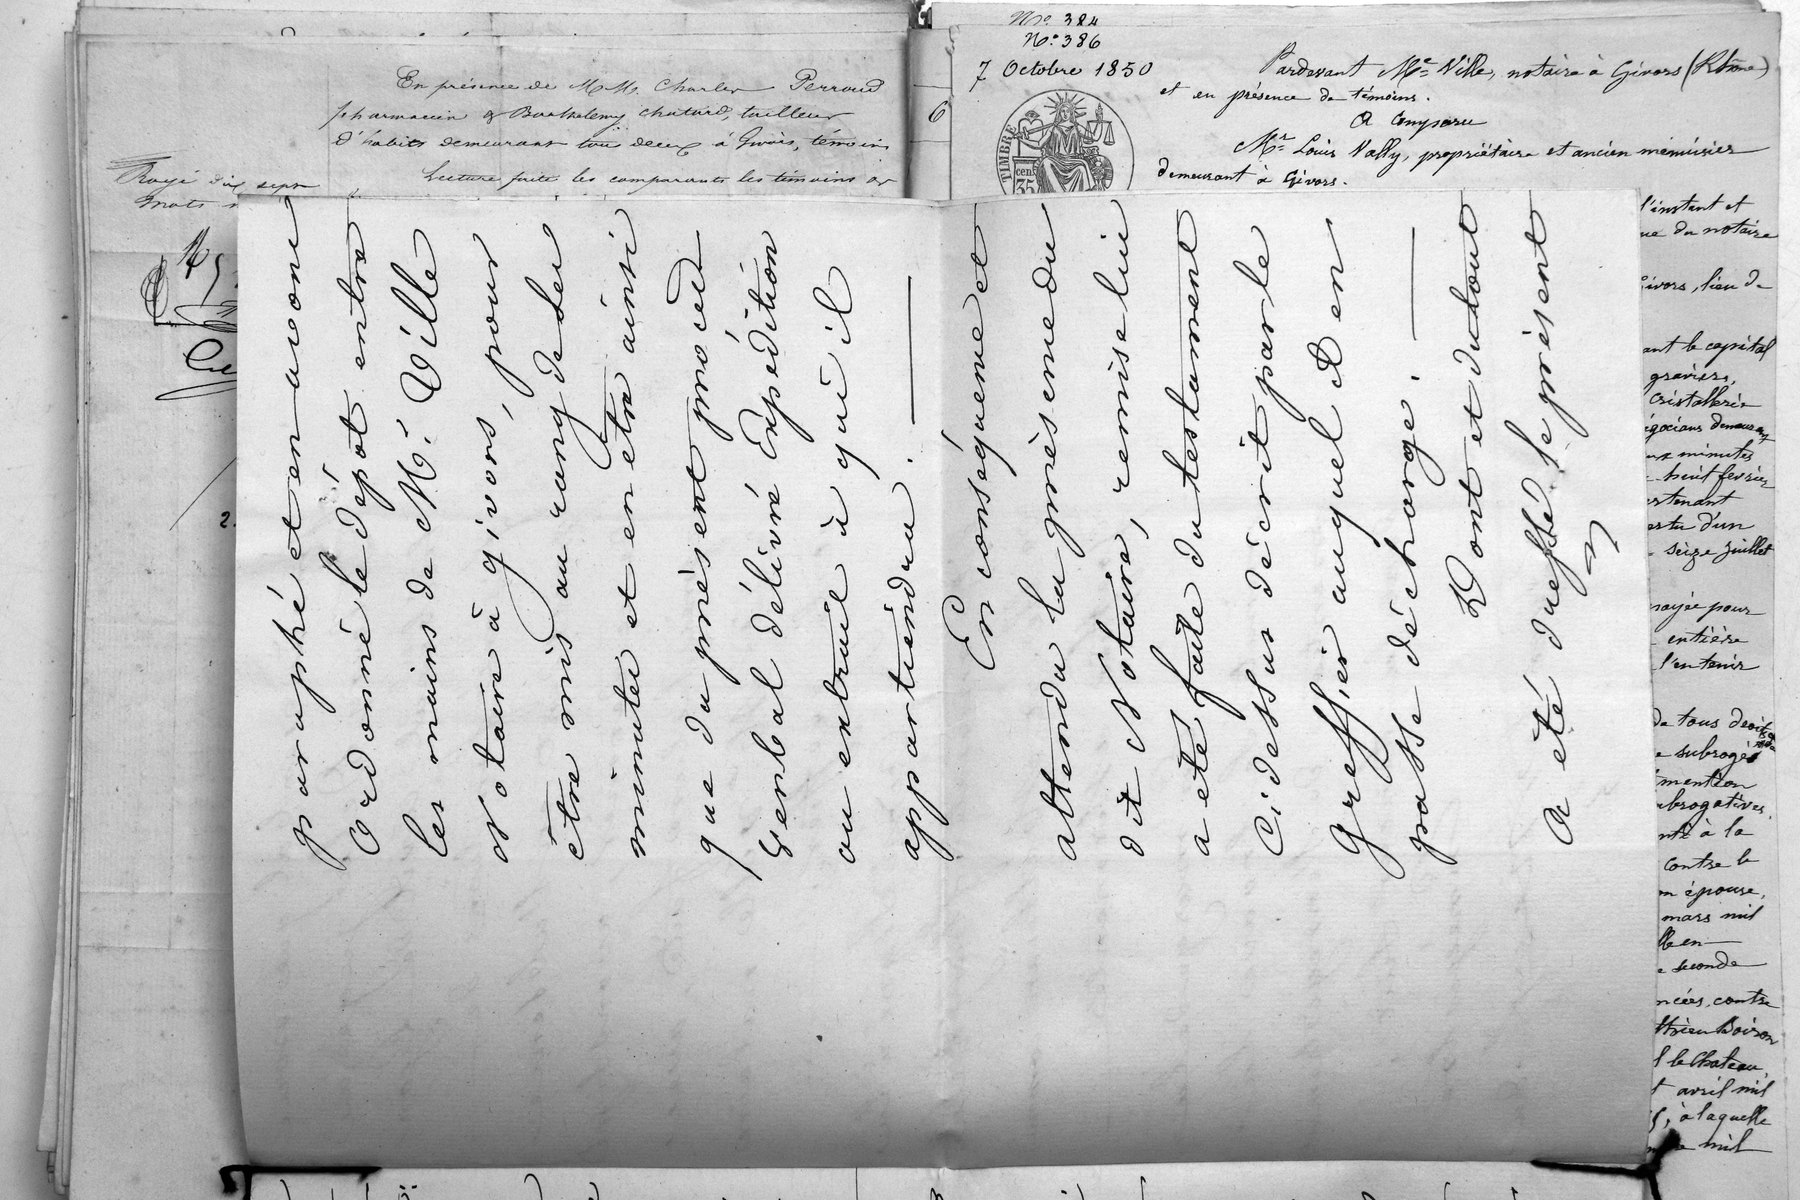 En présence de M.M. Charles Perroud
pharmacien & Barthelemy Chatard, tailleur
d'habits demeurant tous deux à Givors, témoins
Lecture faite les comparants les témoins et
Rayé dix sept
mots
No. 384
No. 386
7 Octobre 1850
6
TIMBRE
35
cen
Pardevant Me Ville, notaire à Givors (Rhône)
et en présence de témoins.
A Comparu
Mr Louis Vally, propriétaire et ancien menuisier
demeurant à Givors.
paraphé et en avons
Ordonné le dépôt entre
les mains de Me. Ville
Notaire à givors, pour
être mis au rang de ses
minutes et en être ainsi
que du présent procès
Verbal délivré Expédition
ou extrait à qui il
appartiendra. —
En conséquence et
attendu la présence du
dit Notaire, remise lui
a été faite du testament
Ci dessus décrit par le
Greffier auquel Il en
passe décharge. —
Dont et du tout
A été dressé le présent
l'instant et
ue du notaire
Givors, lieu de
ant le capital
graviers,
Cristallerie
égocians demeurant
aux minutes
huit février
estenant
estu d'un
seize juillet
noyée pour
entière
l'entenir
de tous droits
e subrogé
mention
ubrogatives,
nti à la
contre le
on épouse,
mars mil
lle en
e seconde
ncées, contre
tthieu Boiron
l le Chateau,
t avril mil
, à laquelle
mil